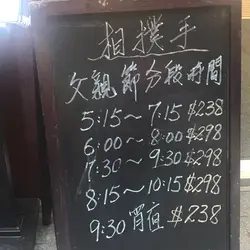 相撲手
父親節分段時間
5:15～7:15 $238
6:00～8:00 $298
7:30～9:30 $298
8:15～10:15 $298
9:30 宵夜 $238